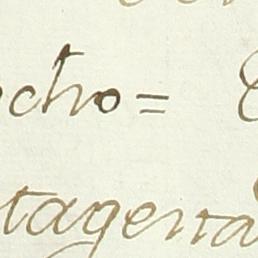 echo=
tagena